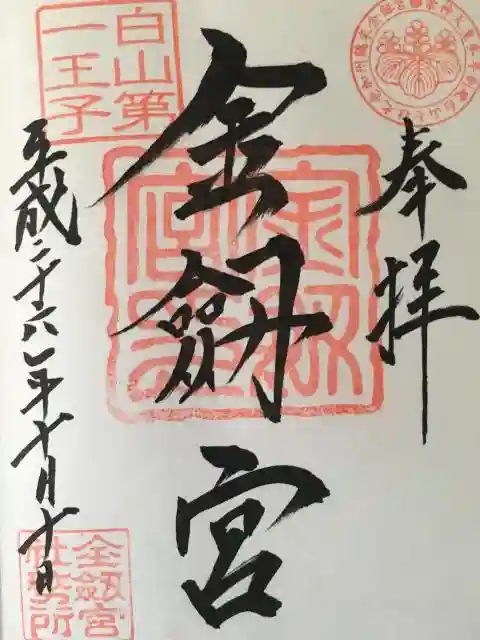 奉拝
金劔宮
平成二十六年十月十日
白山第
一王子
金劔宮
金劔宮
社務所